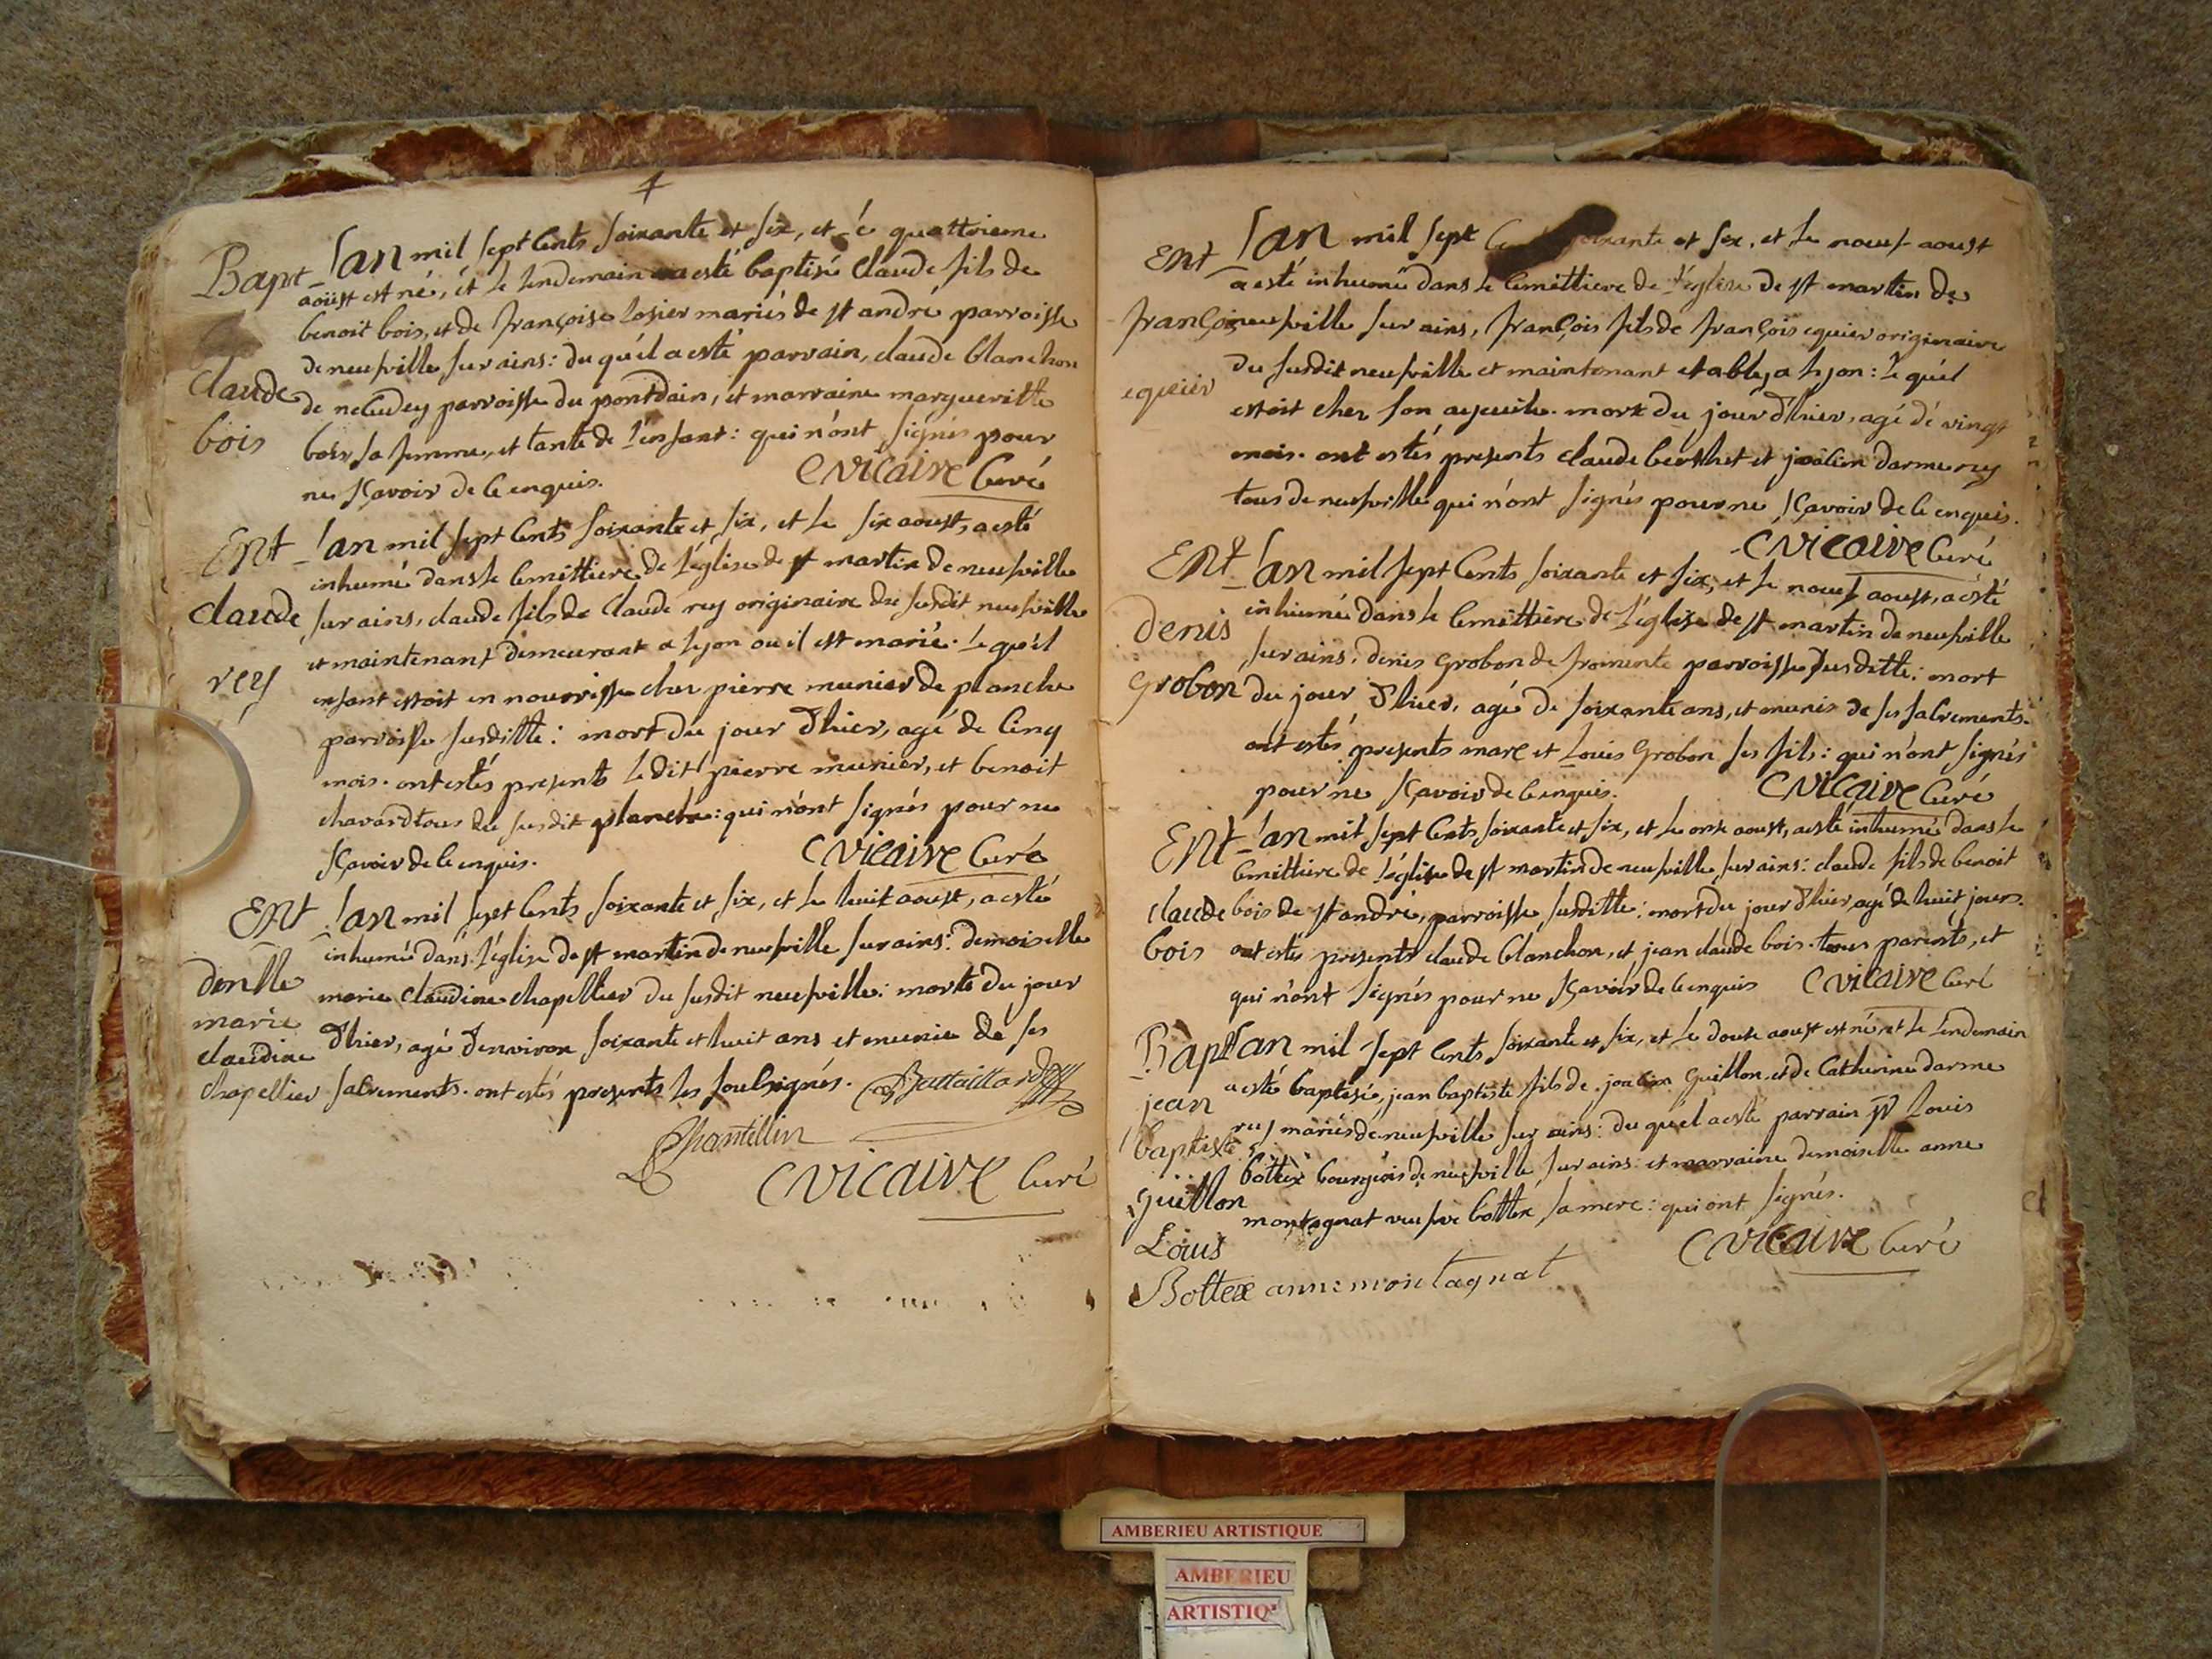 4
Bapt Lan mil sept Cents soixante et six, et le quattrieme
aoust est né, et le lendemain a esté baptisé Claude fils de
benoit bois, et de françoise losier mariés de st andré parroisse
de neufville sur ains: du quel a esté parrain, claude blanchon
claude de necudey parroisse du pontdain, et marraine margueritte
bois bois sa femme, et tante de l'enfant: qui n'ont signés pour
ne sçavoir de ce enquis. C Vicaire Curé
Ent Lan mil sept Cents soixante et six, et le six aoust, a esté
inhumé dans le Cemittiere de l'église de st martin de neufville
claude sur ains, claude fils de Claude rey originaire du susdit neufville
rey et maintenant demeurant a lyon ou il est marié. le quel
enfant estoit en nourrisse cher pierre munier de planche
parroisse susditte: mort du jour d'hier, agé de Cinq
mois. ont estés presents le dit pierre munier, et benoit
chavard tous du susdit planche: qui n'ont signés pour ne
sçavoir de ce enquis. C Vicaire Curé
Ent Lan mil sept Cents soixante et six, et le huit aoust, a esté
inhumé dans l'église de st martin de neufville sur ains: demoiselle
dlle marie claudine chapellier du susdit neufville: morte du jour
marie
claudine d'hier, agé d'environ soixante et huit ans et munie de ses
chapellier sacrements. ont estés presents les soussignés. Battaillard
Chantellin
C Vicaire Curé
Ent Lan mil sept soixante et six, et le neuf aoust
a esté inhumé dans le Cemittiere de l'église de st martin de
françois neufville sur ains, françois fils de françois equier originaire
equier du susdit neufville et maintenant etably a lyon: le quel
estoit cher son ayeule. mort du jour d'hier, agé de vingt
mois. ont estés presents claude berthet et joalim darmerey
tous de neufville qui n'ont signés pour ne sçavoir de ce enquis.
C Vicaire Curé
Ent Lan mil sept Cents soixante et six, et le neuf aoust, a esté
inhumé dans le Cemittiere de l'église de st martin de neufville
denis sur ains, denis Grobon de fromente parroisse susditte: mort
Grobon du jour d'hier, agé de soixante ans, et munis de ses sacrements.
ont estés presents marc et Louis Grobon ses fils: qui n'ont signés
pour ne sçavoir de ce enquis. C Vicaire Curé
Ent Lan mil sept Cents soixante et six, et le onze aoust, a esté inhumé dans le
Cemittiere de l'église de st martin de neufville sur ains: claude fils de benoit
claude bois de st andré, parroisse susditte: mort du jour d'hier, agé de huit jours.
bois ont estés presents claude blanchon, et jean claude bois. tous parents, et
qui n'ont signés pour ne sçavoir de ce enquis C Vicaire Curé
Bapt Lan mil sept Cents soixante et six, et le douze aoust est né, et le lendemain
a esté baptisé, jean baptiste fils de joalim Guillon et de Catherine darme
jean rey mariés de neufville sur ains: du quel a esté parrain Louis
baptiste bottex bourgeois de neufville sur ains: et marraine demoiselle anne
Guillon montagnat veufve bottex sa mere: qui ont signés.
Louis C Vicaire Curé
Bottex anne montagnat
AMBERIEU ARTISTIQUE
AMBERIEU
ARTISTIQ